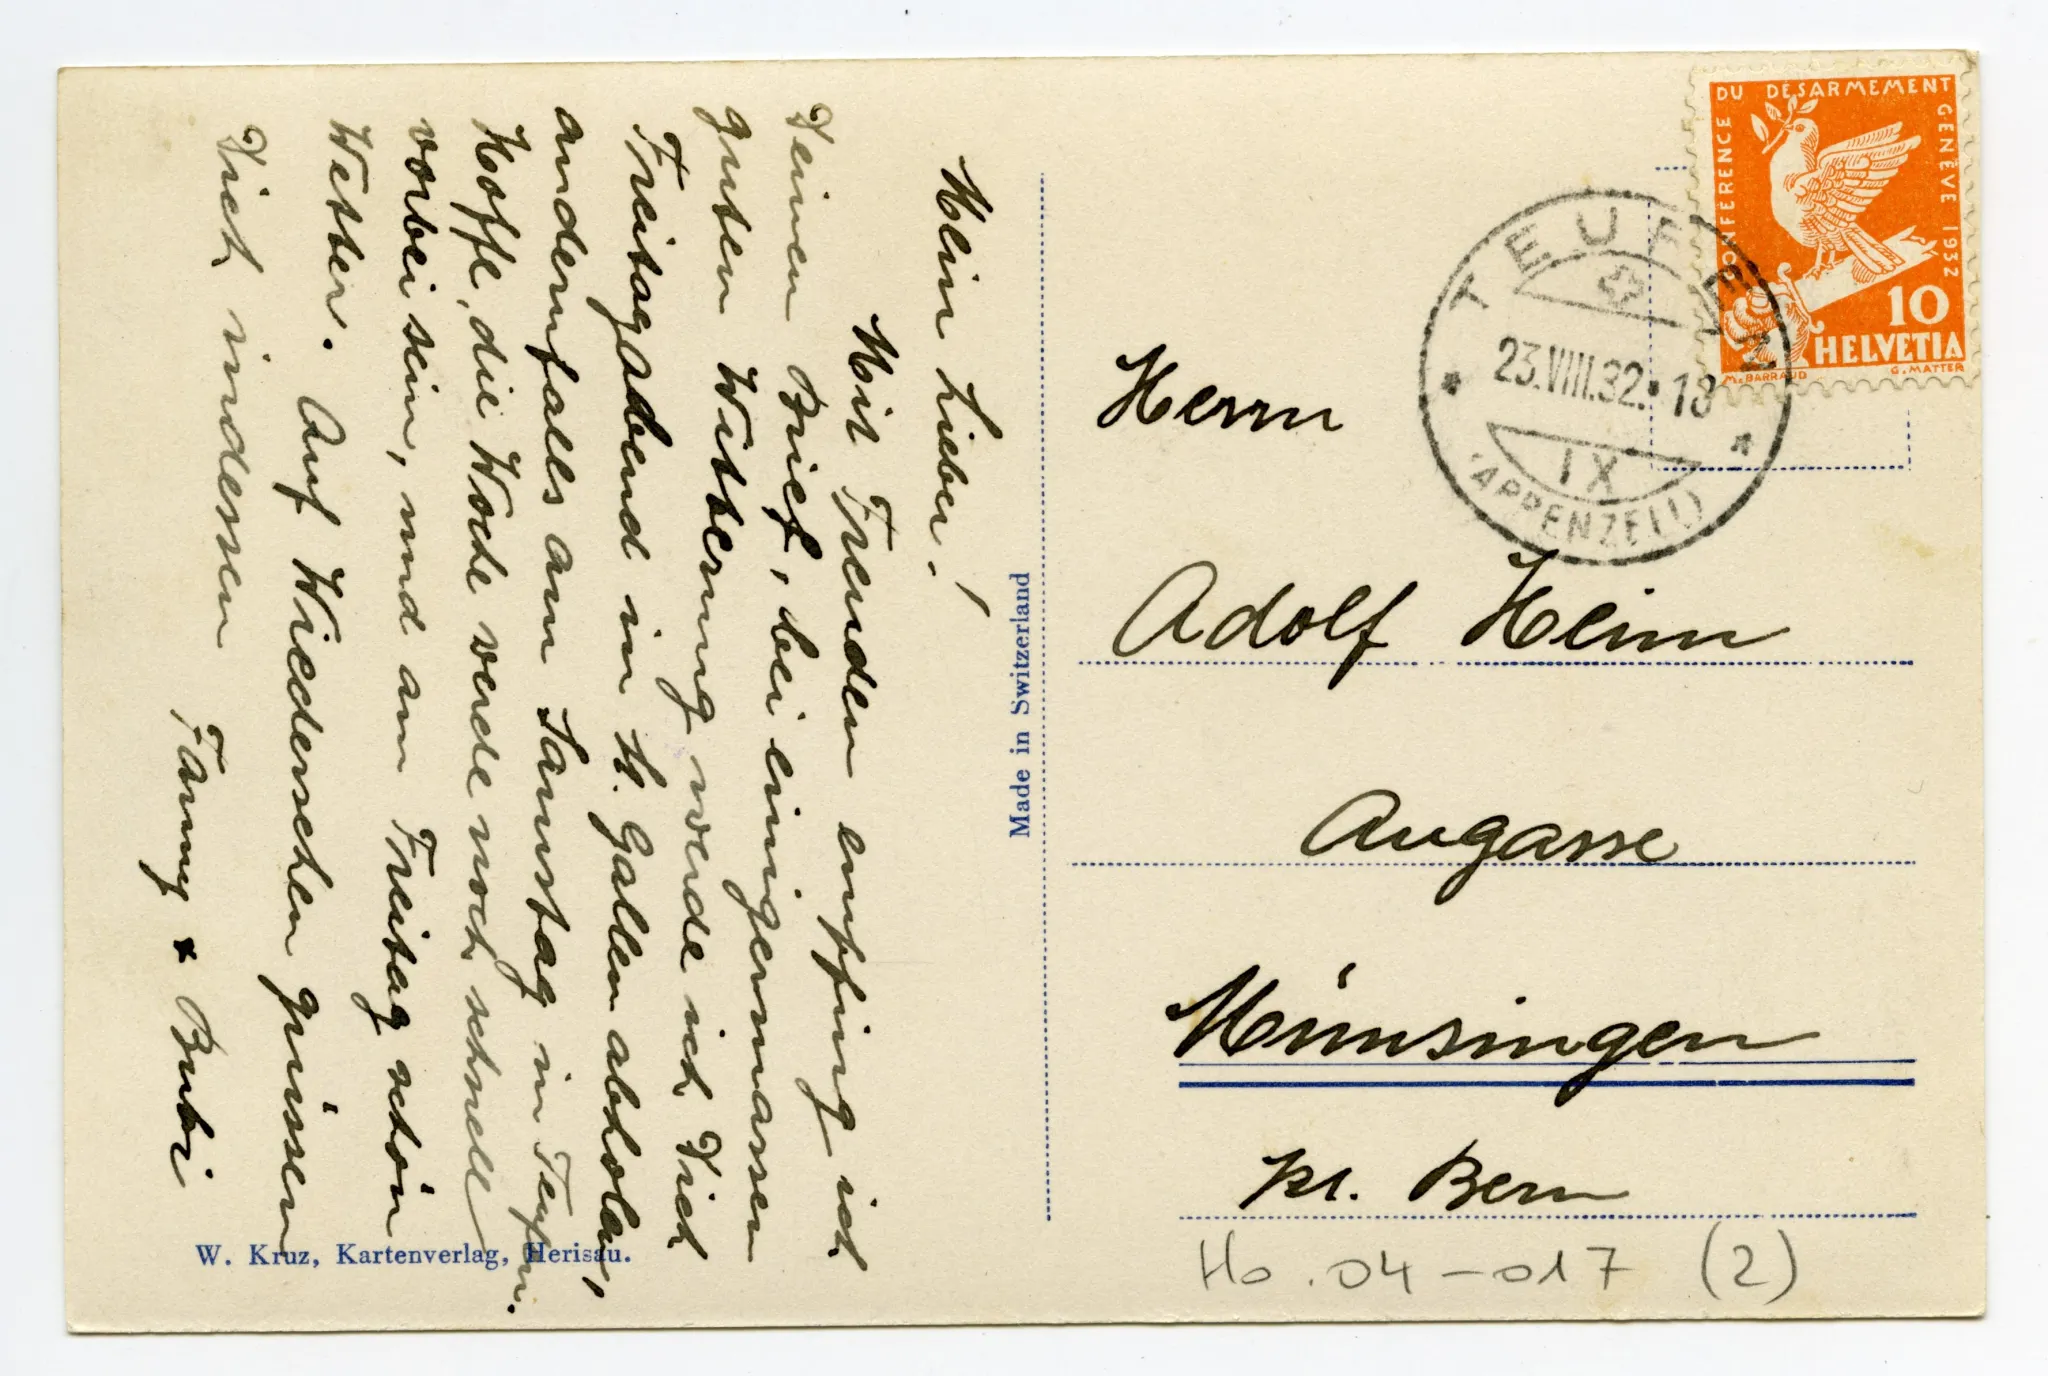 Mein Lieber!
Mit Freuden empfing ich
Deinen Brief, bei einigermassen
guten Witterung werde ich Dich
Freitagabend in St. Gallen abholen,
andernfalls am Samstag in Teufen.
Hoffe, die Woche werde noch schnell
vorbei sein, und am Freitag schön
Wetter. Auf Wiedersehen grüssen
Dich indessen
Fanny + Bubi
W. Kruz, Kartenverlag, Herisau.
Made in Switzerland
CONFERENCE DU DESARMEMENT GENÈVE 1932
10
HELVETIA
M. BARRAUD G. MATTER
TEUFEN
23.VIII.32.18
IX
(APPENZELL)
Herrn
Adolf Heim
Augasse
Münsingen
Kt. Bern
Ho.04-017 (2)